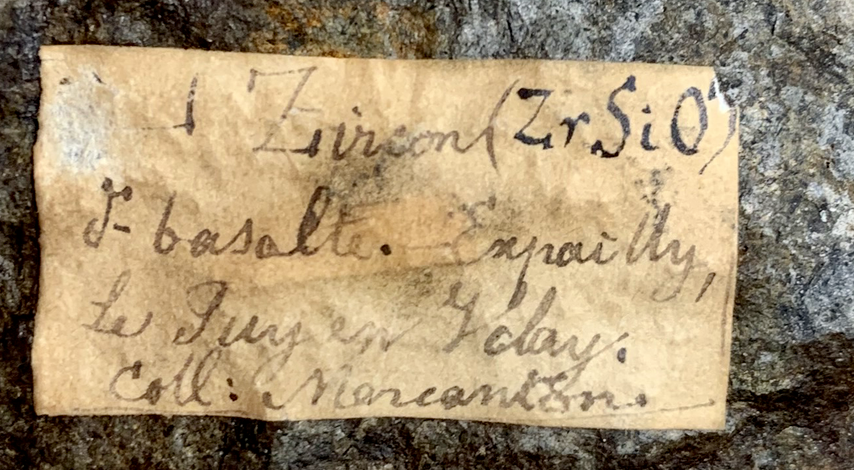 1 Zircon (ZrSiO⁴)
basalte. Expailly,
Le Puy en Velay.
Coll: Marcanton.